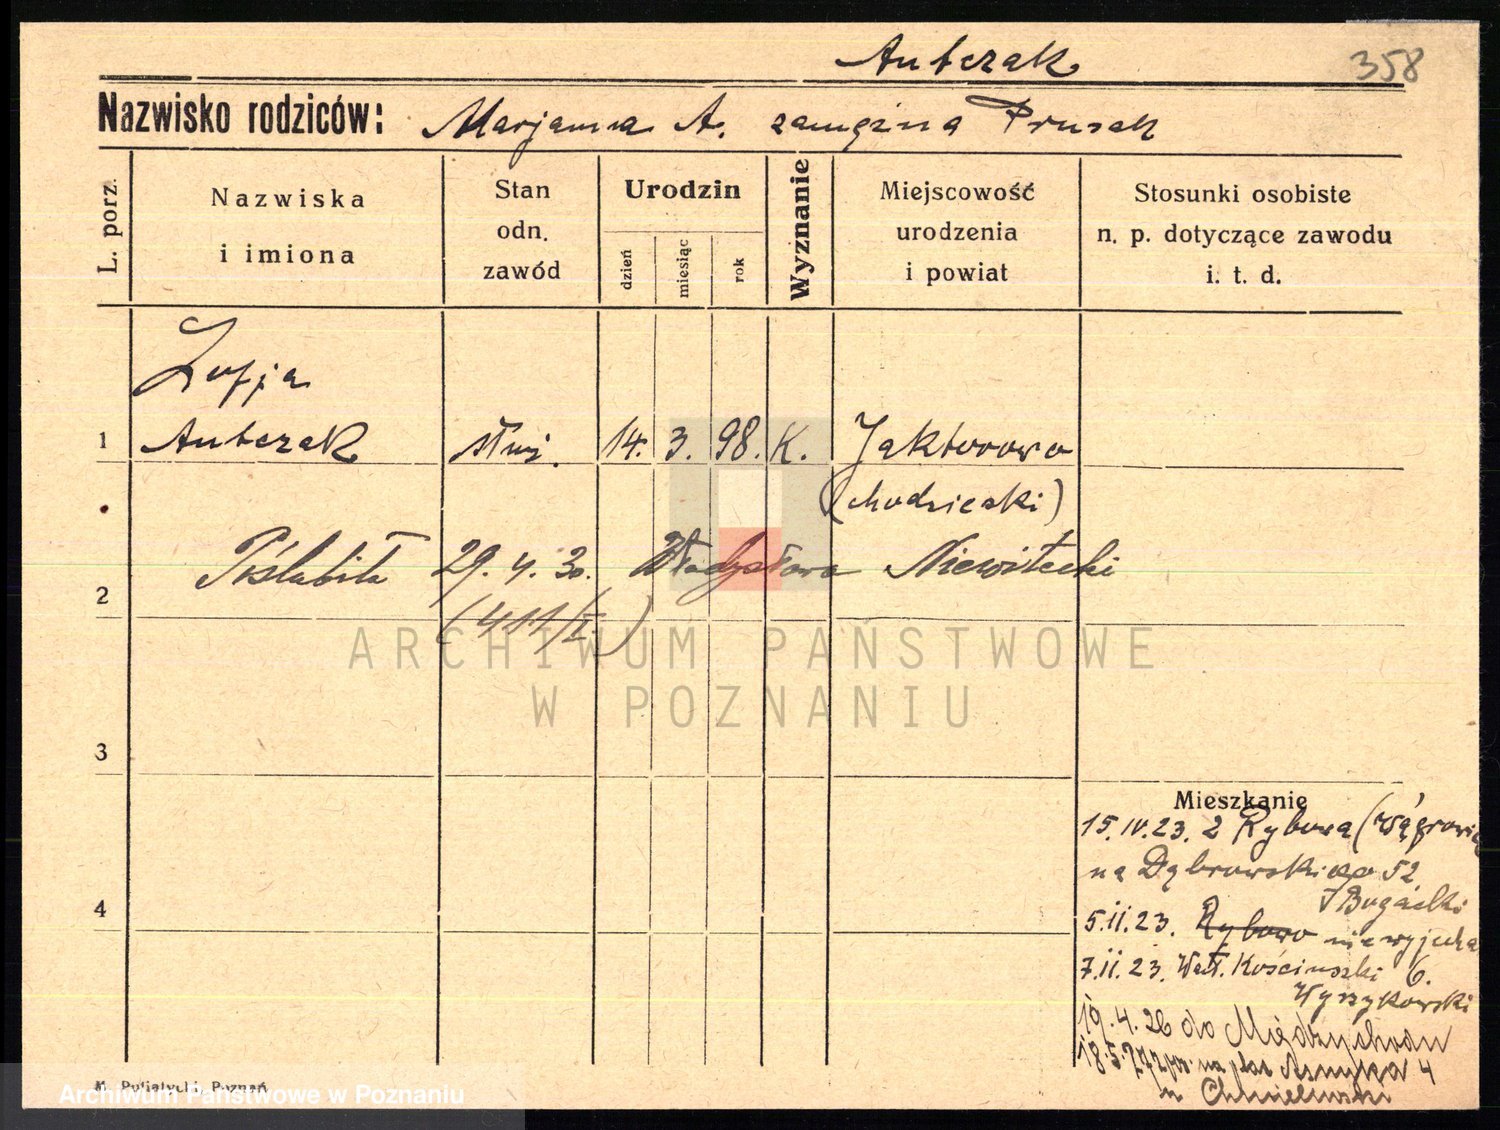 Antczak
358
Nazwisko rodziców: Marjanna A. zamężna Prusak
L. porz.
Nazwiska
i imiona
Stan
odn.
zawód
Urodzin
dzień
miesiąc
rok
Wyznanie
Miejscowość
urodzenia
i powiat
Stosunki osobiste
n. p. dotyczące zawodu
i. t. d.
Zofja
1 Antczak służ. 14. 3. 98. K. Jaktorowo
(chodzieski)
2 Poślubiła 29. 4. 30. Władysława Niewitecki
(411/II)
ARCHIWUM PAŃSTWOWE
W POZNANIU
3
Mieszkanie
15.IV.23. z Rybowa (Wągrowiec
na Dąbrowskiego 52
4
Bogacki
5.II.23. Rybowo nie wyjecha
7.II.23. Wał. Kościuszki 6.
Wyszykowski
19.4.26 do Międzychodu
18.5.27 na plac Asnyka 4
u Chmielewski
M. Putiatycki, Poznań
Archiwum Państwowe w Poznaniu